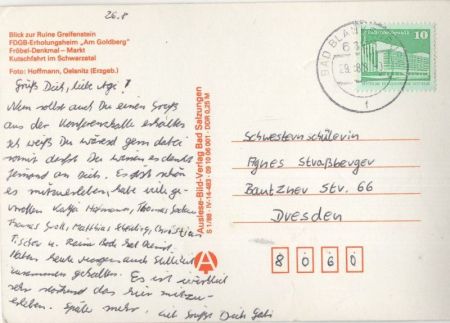 26.8
Blick zur Ruine Greifenstein
FDGB-Erholungsheim „Am Goldberg"
Fröbel-Denkmal – Markt
Kutschfahrt im Schwarzatal
Foto: Hoffmann, Oelsnitz (Erzgeb.)
Grüß Dich, liebe !
Nun sollst auch Du einen Gruß
aus der Konferenzhalle erhalten
ich weiß Du wärest gern dabei
somit darfst Du wissen es denkt
jemand an Dich. Es ist schön
es mitzuerleben, habe viele ge-
troffen Katja Hofmann, Thomas
Thomas Groß, Matthias Christian
Fischer u.
Haben heute morgen auch Stille Zeit
zusammen gehalten. Es ist wirklich
sehr das hier mitzu-
erleben. Später mehr, Grüßt Dich Gabi
Auslese-Bild-Verlag Bad Salzungen
S 1/88 · IV-14-483 · 09 10 06 001 · DDR 0,25 M
A
BAD BLAN
DDR
10
Schwesternschülerin
Agnes Straßberger
Bautzner Str. 66
Dresden
8 0 6 0